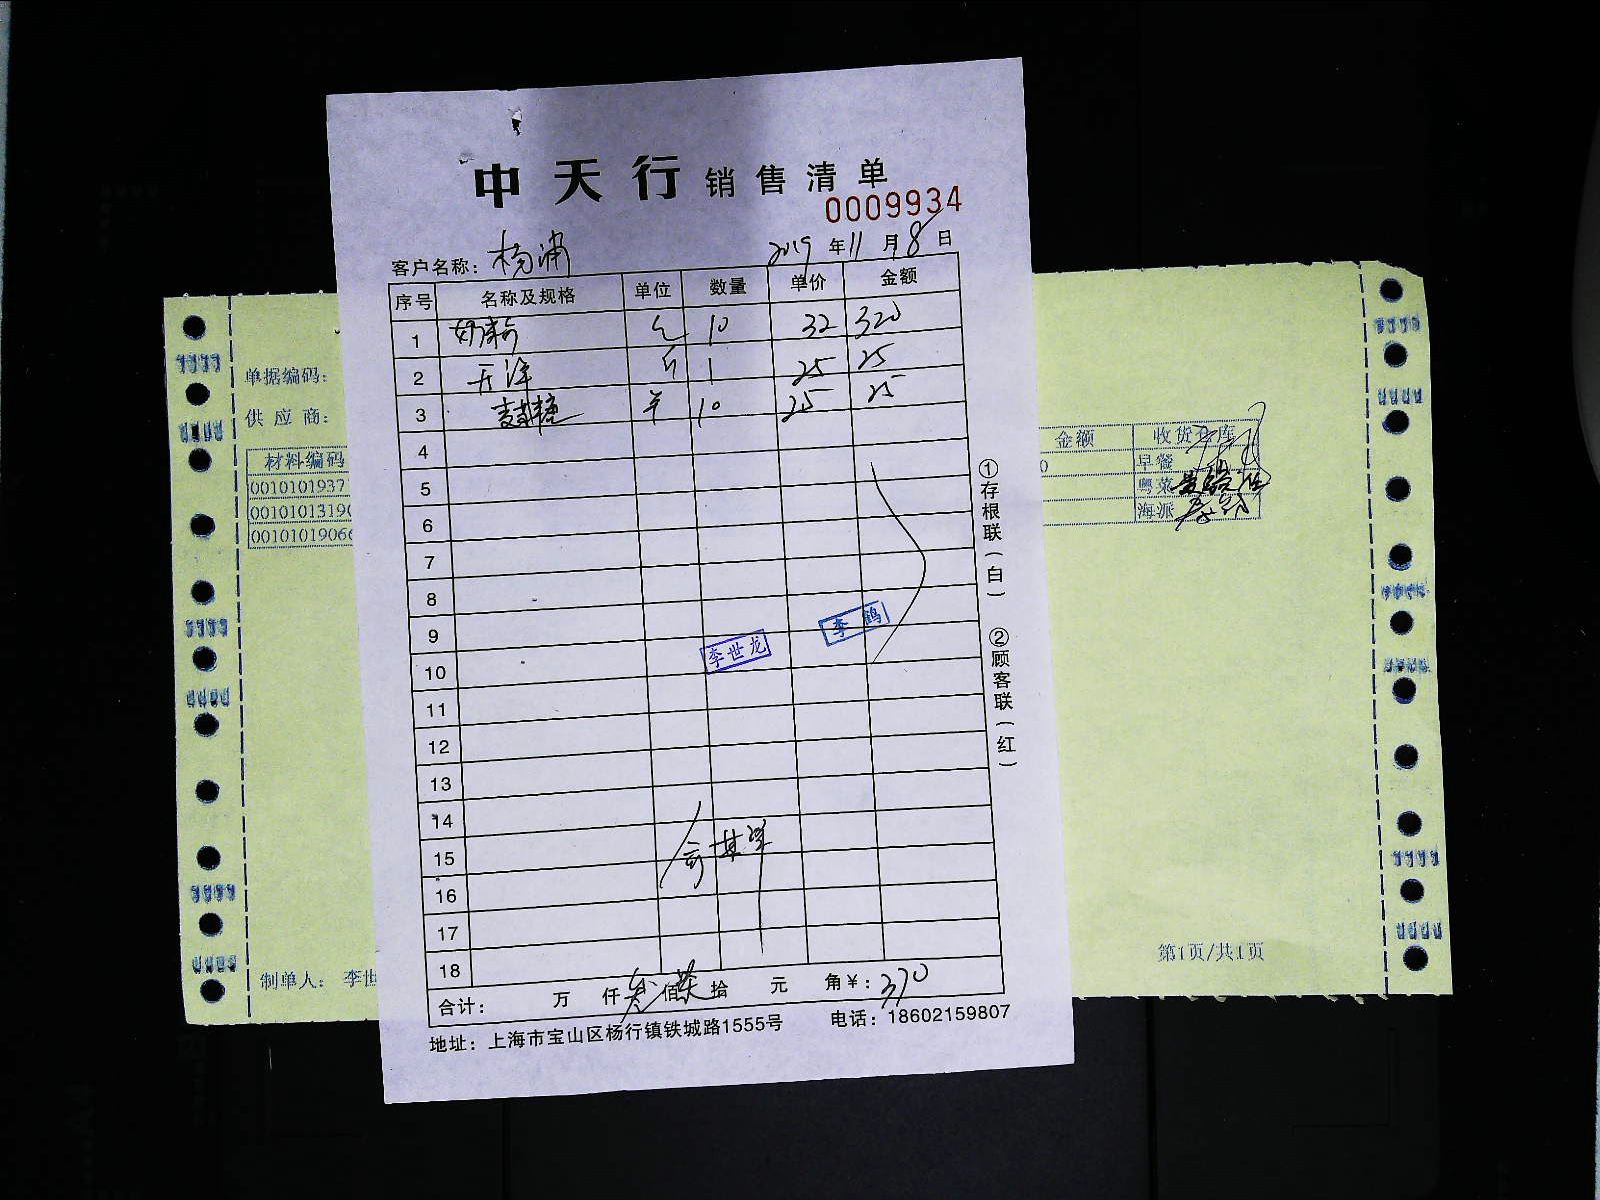 中天行 销售清单
0009934
客户名称：杨浦 2019年11月8日
序号 名称及规格 单位 数量 单价 金额
1 10 32 320
2 开洋 斤 1 25 25
3 麦芽糖 10 25 25
4
5
6
7
8
9
10
11
12
13
14
15
16
17
18
李世龙 李鹤
合计： 万 仟 叁佰 柒拾 元 角¥：370
地址：上海市宝山区杨行镇铁城路1555号 电话：18602159807
①存根联（白） ②顾客联（红）
单据编码：
供应商：
材料编码 金额 收货仓库
0010101937 0 早餐
00101013190 粤菜
00101019066 海派
制单人： 李世
第1页/共1页